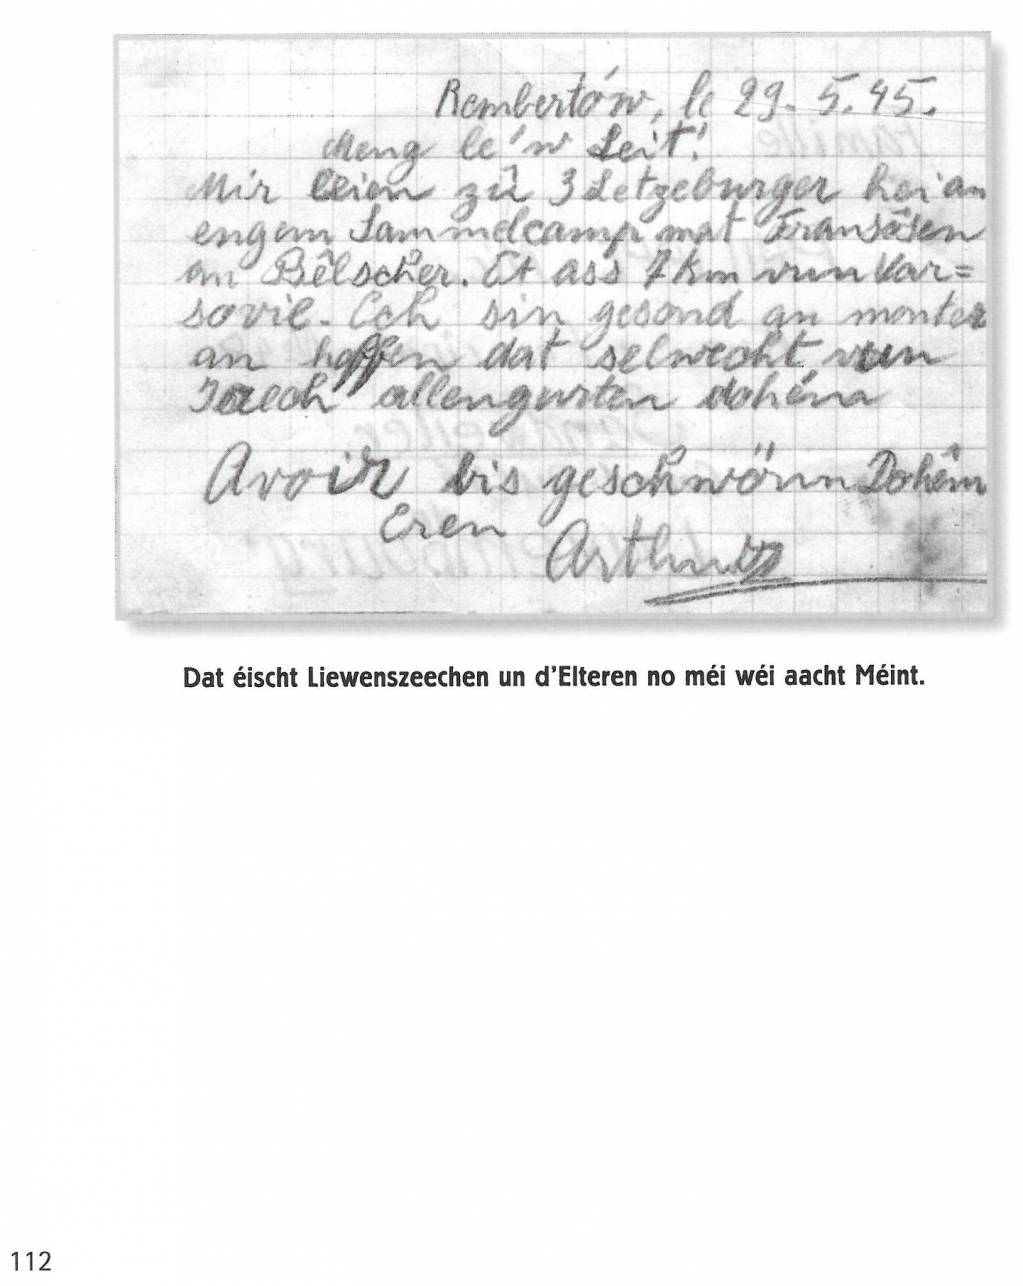 Rembertów, le 29. 5. 45.
Meng le'w Leit!
Mir leien zu 3 Letzeburger hei an
engem Sammelcamp mat Fransösen
an Bêlscher. Et ass 7 km vun Var=
sovie. Ech sin gesond an monter
an hoffen dat selwecht vun
Iaech allengurten dohéna
Avoir bis geschwönn Dohêm
Eren
Arthur
Dat éischt Liewenszeechen un d'Elteren no méi wéi aacht Méint.
112